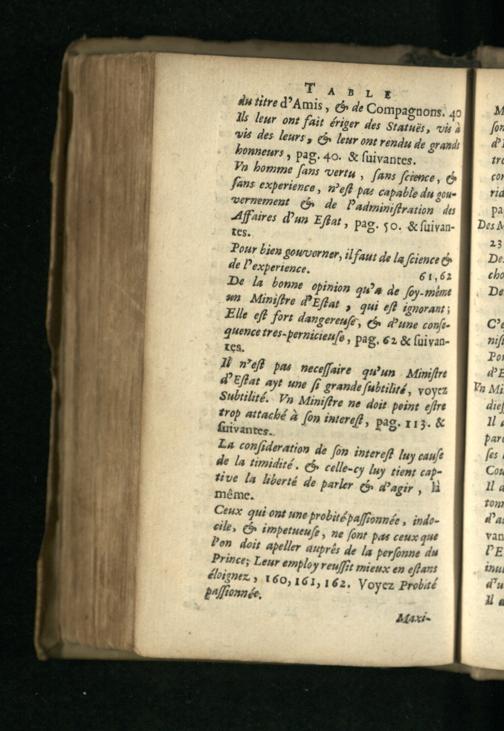 TABLE
du titre d'Amis, & de Compagnons. 40
Ils leur ont fait ériger des Statuës, vis à
vis des leurs, & leur ont rendu de grands
honneurs, pag. 40. & suivantes.
Vn homme sans vertu, sans science, &
sans experience, n'est pas capable du gou-
vernement & de l'administration des
Affaires d'un Estat, pag. 50. & suivan-
tes.
Pour bien gouverner, il faut de la science &
de l'experience. 61, 62
De la bonne opinion qu'a de soy-même
un Ministre d'Estat, qui est ignorant;
Elle est fort dangereuse, & d'une conse-
quence tres-pernicieuse, pag. 62 & suivan-
tes.
Il n'est pas necessaire qu'un Ministre
d'Estat ayt une si grande subtilité, voyez
Subtilité. Vn Ministre ne doit point estre
trop attaché à son interest, pag. 113. &
suivantes.
La consideration de son interest luy cause
de la timidité. & celle-cy luy tient cap-
tive la liberté de parler & d'agir, là
même.
Ceux qui ont une probité passionnée, indo-
cile, & impetueuse, ne sont pas ceux que
l'on doit apeller auprés de la personne du
Prince; Leur employ reussit mieux en estans
éloignez, 160, 161, 162. Voyez Probité
passionnée.
Maxi-